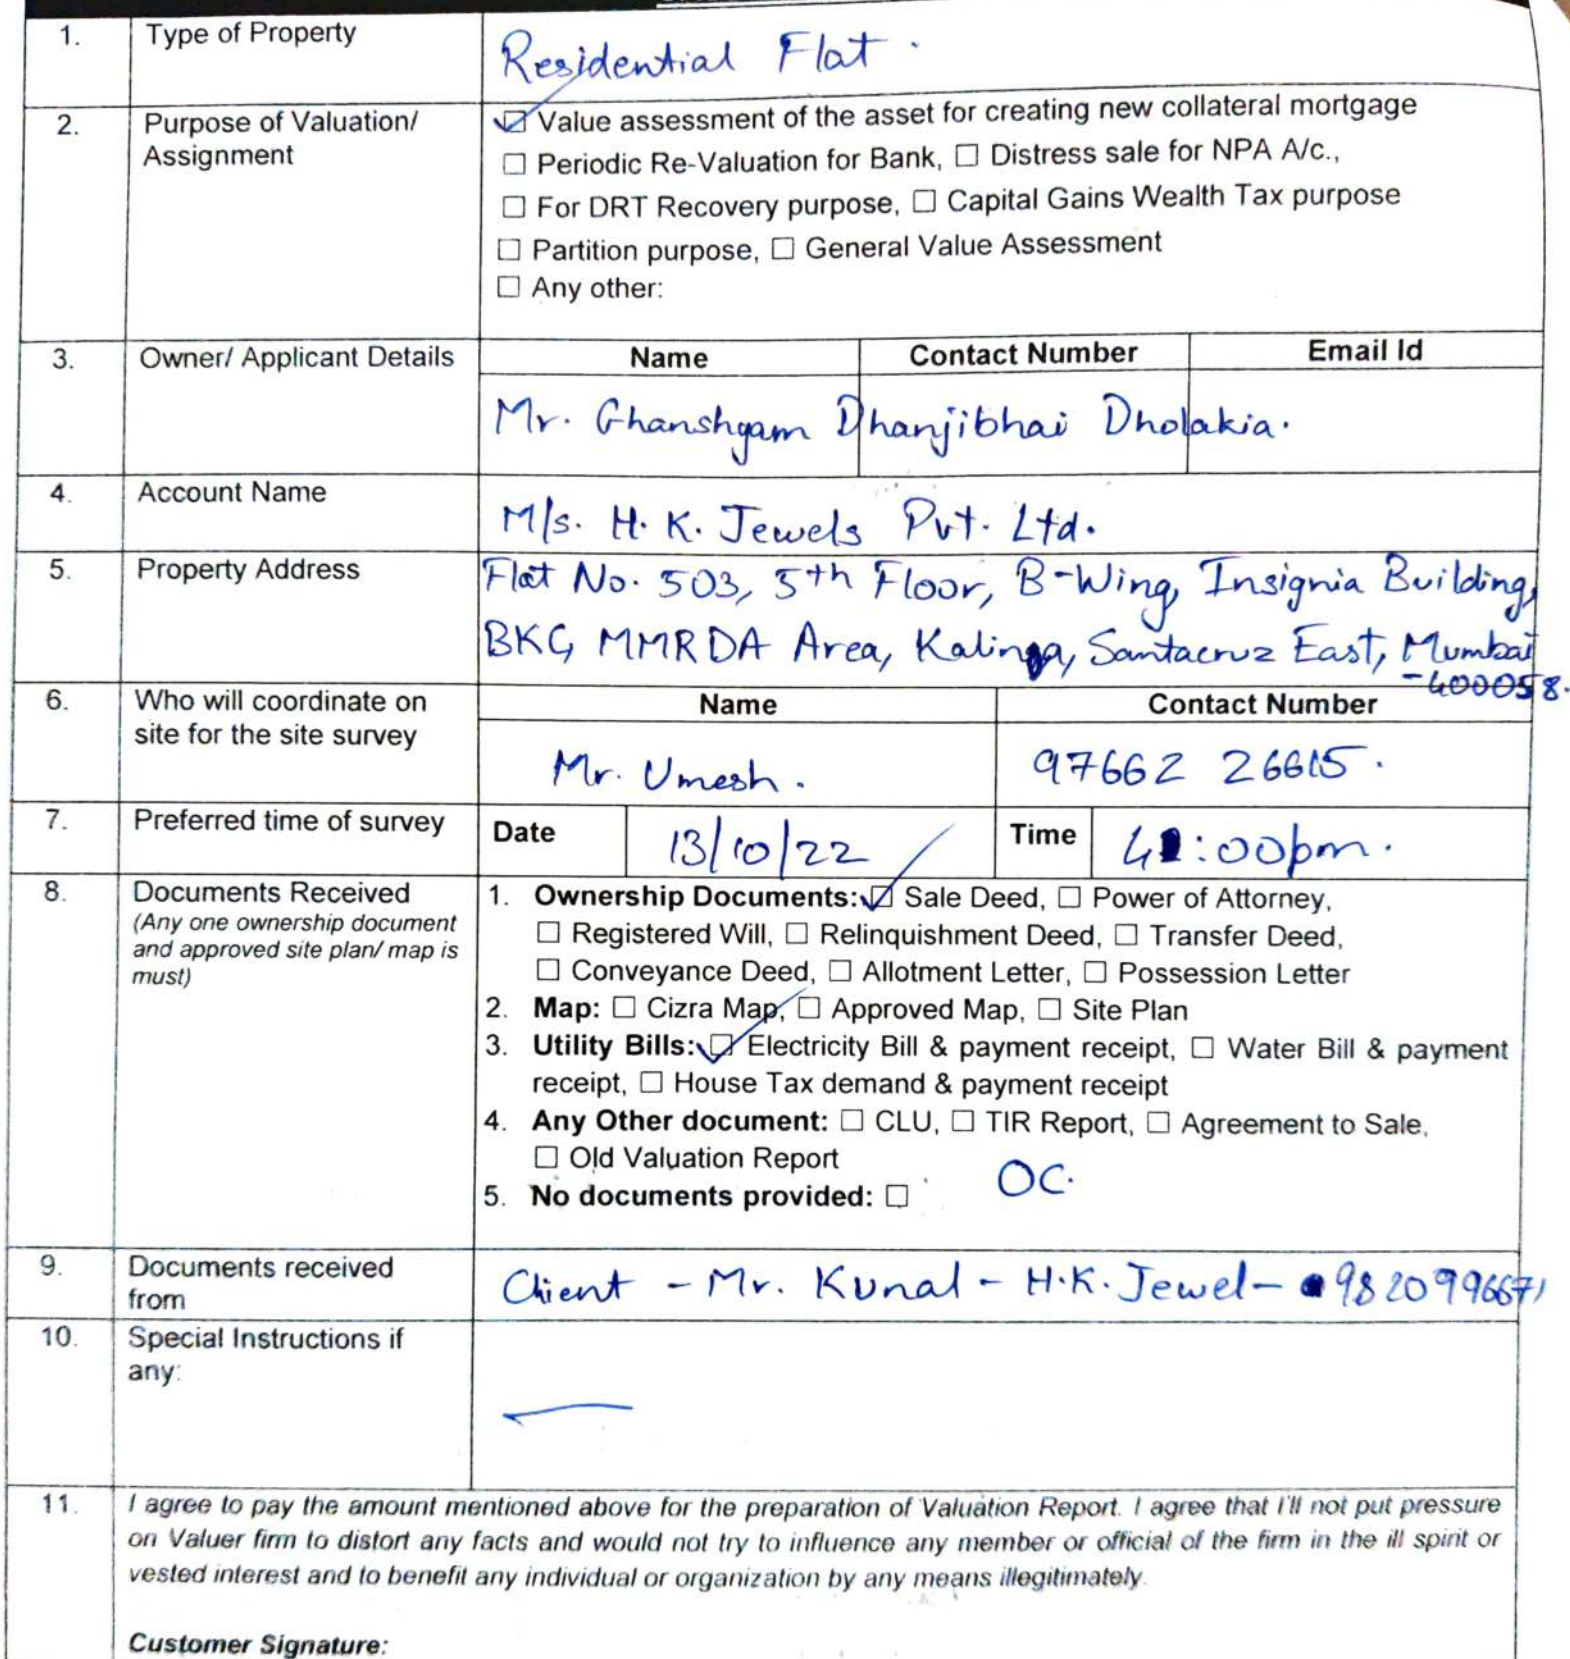 1. Type of Property Residential Flat.
2. Purpose of Valuation/ Assignment
☑ Value assessment of the asset for creating new collateral mortgage
☐ Periodic Re-Valuation for Bank, ☐ Distress sale for NPA A/c.,
☐ For DRT Recovery purpose, ☐ Capital Gains Wealth Tax purpose
☐ Partition purpose, ☐ General Value Assessment
☐ Any other:
3. Owner/ Applicant Details Name Contact Number Email Id
Mr. Ghanshyam Dhanjibhai Dholakia.
4. Account Name M/s. H. K. Jewels Pvt. Ltd.
5. Property Address Flat No. 503, 5th Floor, B-Wing, Insignia Building,
BKC, MMRDA Area, Kalina, Santacruz East, Mumbai
-400058.
6. Who will coordinate on Name Contact Number
site for the site survey
Mr. Umesh. 97662 26615.
7. Preferred time of survey Date 13/10/22 Time 4:00pm.
8. Documents Received
(Any one ownership document
and approved site plan/ map is
must)
1. Ownership Documents: ☑ Sale Deed, ☐ Power of Attorney,
☐ Registered Will, ☐ Relinquishment Deed, ☐ Transfer Deed,
☐ Conveyance Deed, ☐ Allotment Letter, ☐ Possession Letter
2. Map: ☐ Cizra Map, ☐ Approved Map, ☐ Site Plan
3. Utility Bills: ☑ Electricity Bill & payment receipt, ☐ Water Bill & payment
receipt, ☐ House Tax demand & payment receipt
4. Any Other document: ☐ CLU, ☐ TIR Report, ☐ Agreement to Sale,
☐ Old Valuation Report
OC.
5. No documents provided: ☐
9. Documents received
from
Client - Mr. Kunal - H.K. Jewel - 9820996671
10. Special Instructions if
any:
11. I agree to pay the amount mentioned above for the preparation of Valuation Report. I agree that I'll not put pressure
on Valuer firm to distort any facts and would not try to influence any member or official of the firm in the ill spirit or
vested interest and to benefit any individual or organization by any means illegitimately.
Customer Signature: